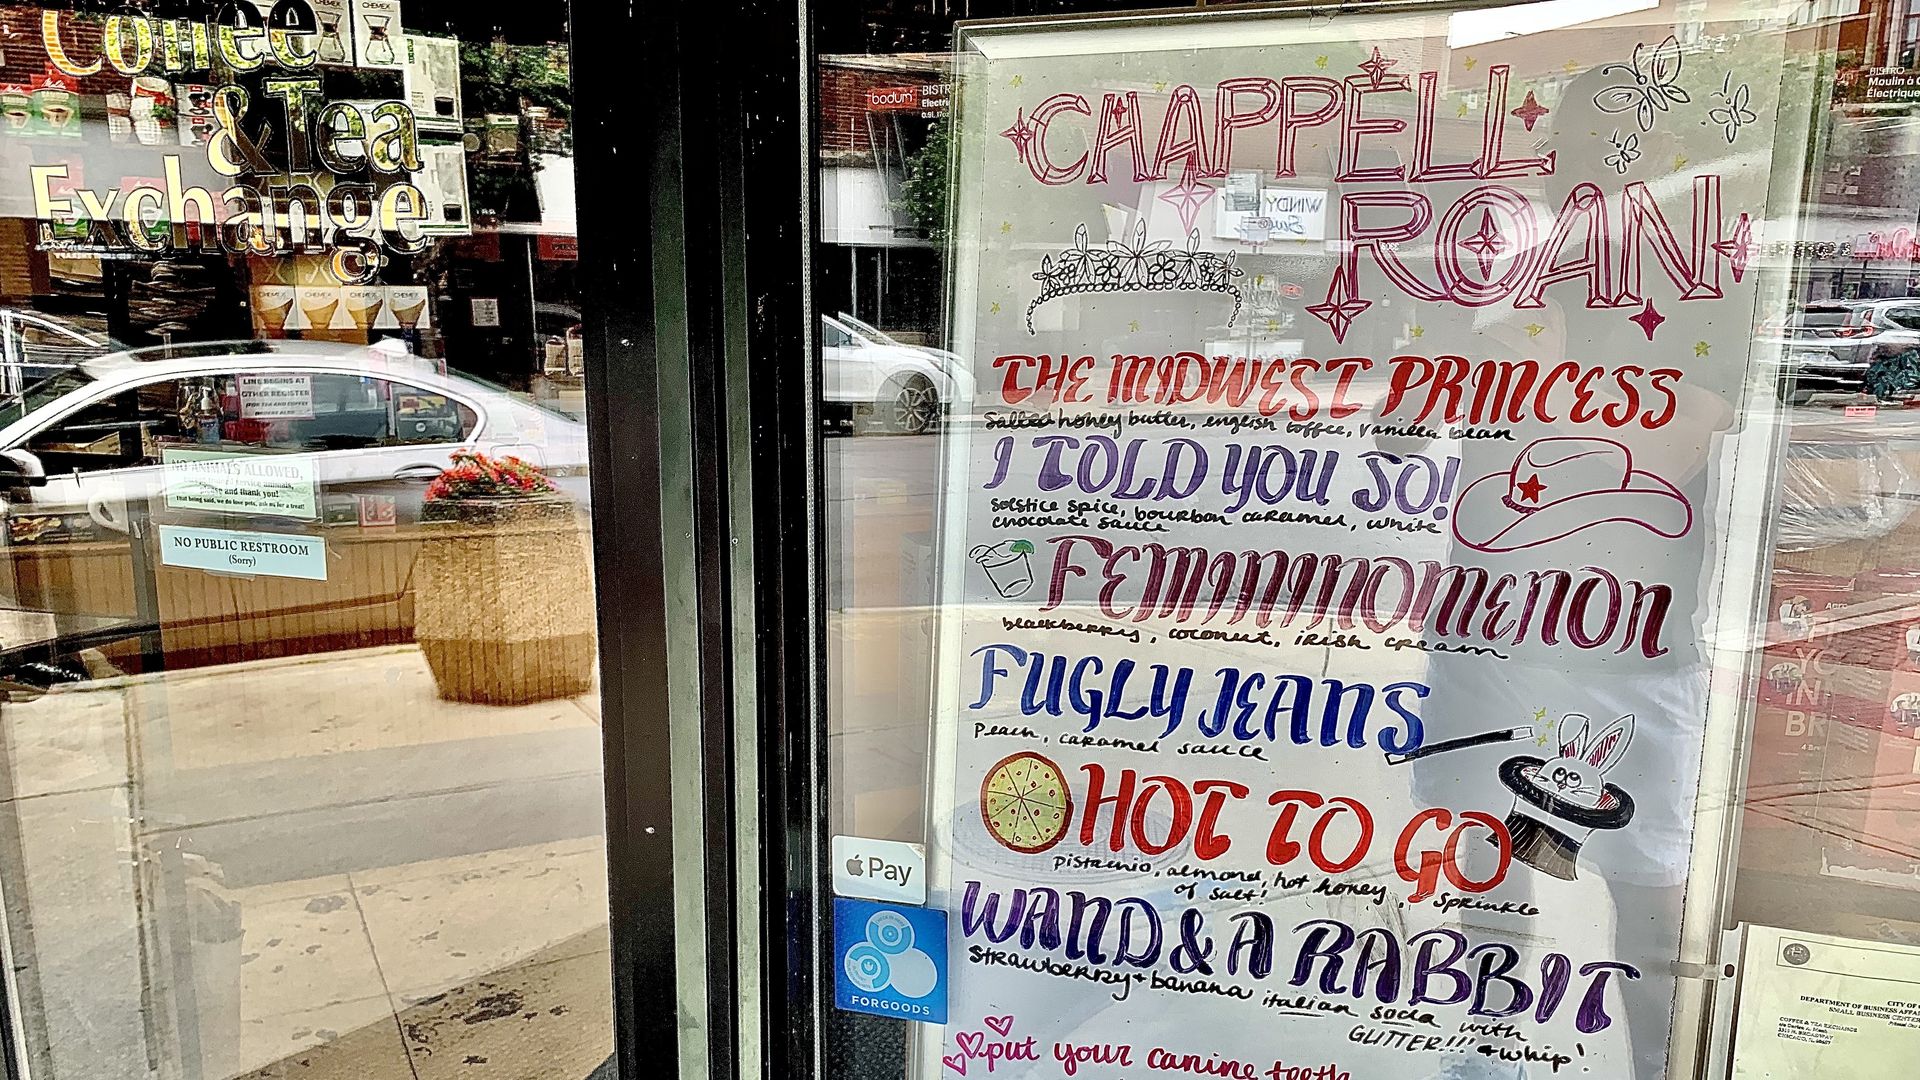 Coffee
& Tea
Exchange
CHEMEX
CHEMEX CHEMEX CHEMEX CHEMEX
LINE BEGINS AT
OTHER REGISTER
NO ANIMALS ALLOWED,
service animals,
and thank you!
That being said, we do love pets, ask me for a treat!
NO PUBLIC RESTROOM
(Sorry)
bodum
BISTRO
Moulin à
Électrique
CHAPPELL
ROAN
WINDY
THE MIDWEST PRINCESS
Salted honey butter, english toffee, vanilla bean
I TOLD YOU SO!
Solstice spice, bourbon caramel, white
chocolate sauce
FEMININOMENON
blackberry, coconut, irish cream
FUGLY JEANS
Peach, caramel sauce
HOT TO GO
pistachio, almond, hot honey, sprinkle
of salt!
WAND & A RABBIT
Strawberry + banana italian soda with
GLITTER!!! + whip!
put your canine teeth
Pay
FORGOODS
CITY OF
DEPARTMENT OF BUSINESS AFFA
SMALL BUSINESS CENTER
COFFEE & TEA EXCHANGE
CHICAGO, IL